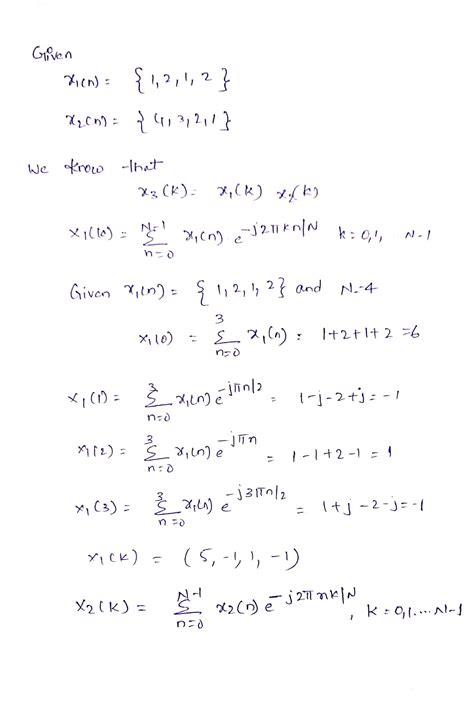 Given
x₁(n) = { 1, 2, 1, 2 }
x₂(n) = { 4, 3, 2, 1 }
We know that
x₃(k) = x₁(k) x₂(k)
x₁(k) = N-1 Σ n=0 x₁(n) e^-j2πkn/N k = 0, 1, N-1
Given x₁(n) = { 1, 2, 1, 2 } and N=4
x₁(0) = 3 Σ n=0 x₁(n) = 1+2+1+2 = 6
x₁(1) = 3 Σ n=0 x₁(n) e^-jπn/2 = 1-j-2+j = -1
x₁(2) = 3 Σ n=0 x₁(n) e^-jπn = 1-1+2-1 = 1
x₁(3) = 3 Σ n=0 x₁(n) e^-j3πn/2 = 1+j-2-j = -1
x₁(k) = (5, -1, 1, -1)
x₂(k) = N-1 Σ n=0 x₂(n) e^-j2πnk/N, k = 0, 1.... N-1